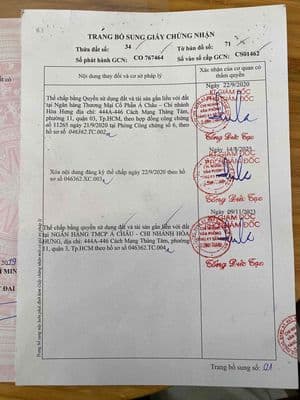 TRANG BỔ SUNG GIẤY CHỨNG NHẬN
Thửa đất số: 34 Tờ bản đồ số: 71
Số phát hành GCN: CO 767464 Số vào sổ cấp GCN: CS01462
Nội dung thay đổi và cơ sở pháp lý
Xác nhận của cơ quan có thẩm quyền
Thế chấp bằng Quyền sử dụng đất và tài sản gắn liền với đất
tại Ngân hàng Thương Mại Cổ Phần Á Châu – Chi nhánh
Hòa Hưng, địa chỉ: 444A-446 Cách Mạng Tháng Tám,
phường 11, quận 03, Tp.HCM, theo hợp đồng công chứng
số 11265 ngày 21/9/2020 tại Phòng Công chứng số 6, theo
hồ sơ số 046362.TC.002
Ngày 22/9/2020
KT.GIÁM ĐỐC
PHÓ GIÁM ĐỐC
Tống Đức Tạo
Xóa nội dung đăng ký thế chấp ngày 22/9/2020 theo hồ
sơ số 046362.XC.003
14/8/2023
KT.GIÁM ĐỐC
PHÓ GIÁM ĐỐC
Tống Đức Tạo
Thế chấp bằng quyền sử dụng đất và tài sản gắn liền với đất
tại NGÂN HÀNG TMCP Á CHÂU - CHI NHÁNH HÒA
HƯNG, địa chỉ: 444A-446 Cách Mạng Tháng Tám, phường
11, quận 3, Tp.HCM theo hồ sơ số 046362.TC.004
Ngày 09/11/2023
KT.GIÁM ĐỐC
PHÓ GIÁM ĐỐC
Tống Đức Tạo
Trang bổ sung số: 01